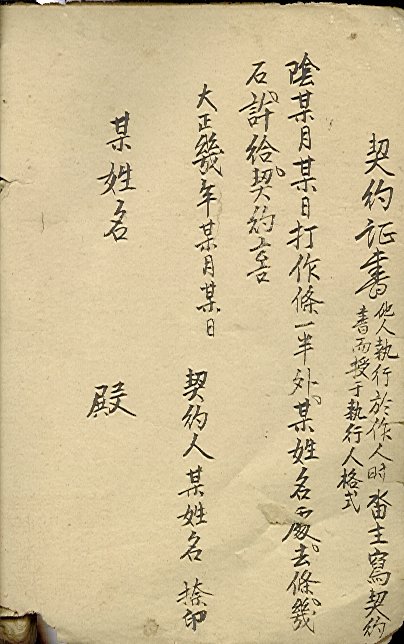 契約証書
他人執行於作人时畓主寫契約
書而授于執行人格式
陰某月某日打作條一半外某姓名處去條幾
石許給契約書
大正幾年某月某日
契約人某姓名 捺印
某姓名 殿